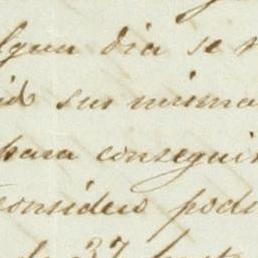 lgun dia se
sus misma
para conseguir
considero pod
de 37